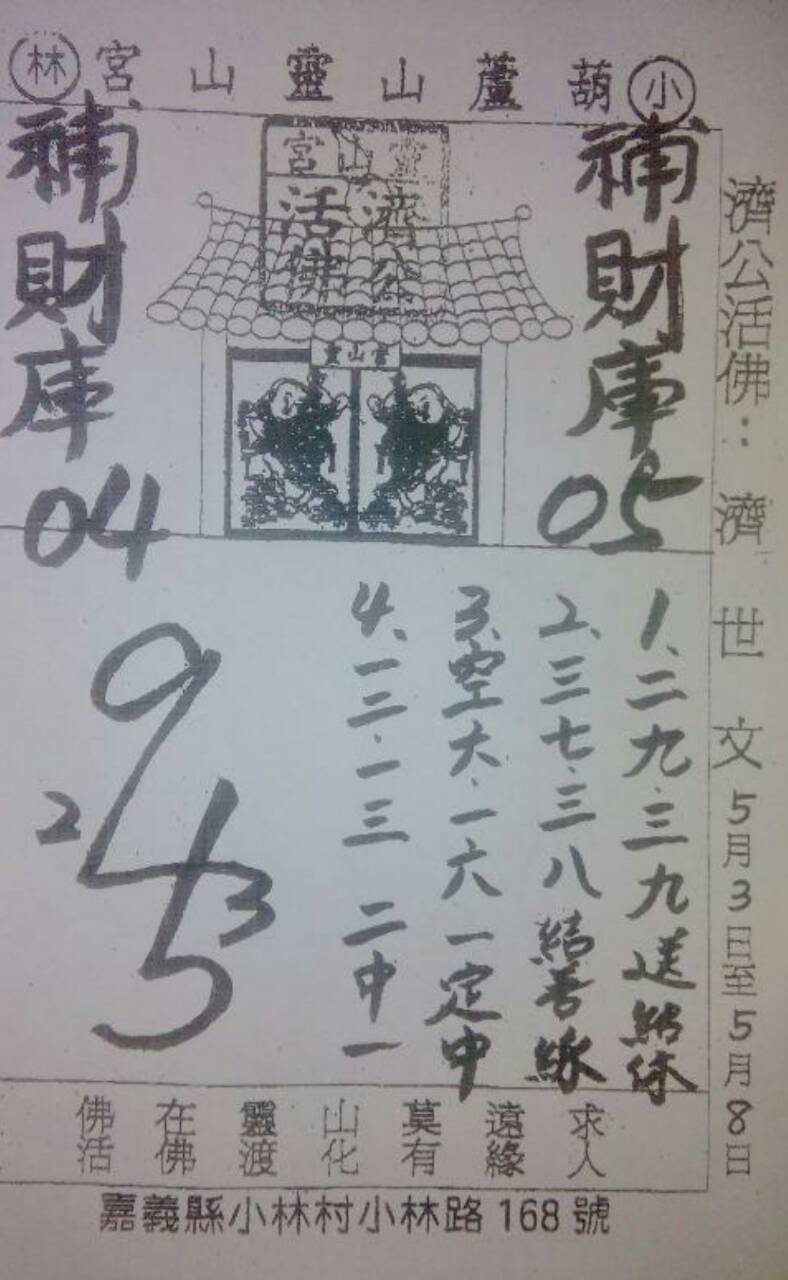 小葫蘆山靈山宮林
濟公活佛：濟世文5月3日至5月8日
靈山宮
濟公
活佛
靈山靈
補財庫05
補財庫04
1、二九.三九送給你
2、三七.三八結善緣
3、空六.一六一定中
4、一二.一三 二中一
9
2
4
3
5
求人
遠緣
莫有
山化
靈渡
在佛
佛活
嘉義縣小林村小林路168號